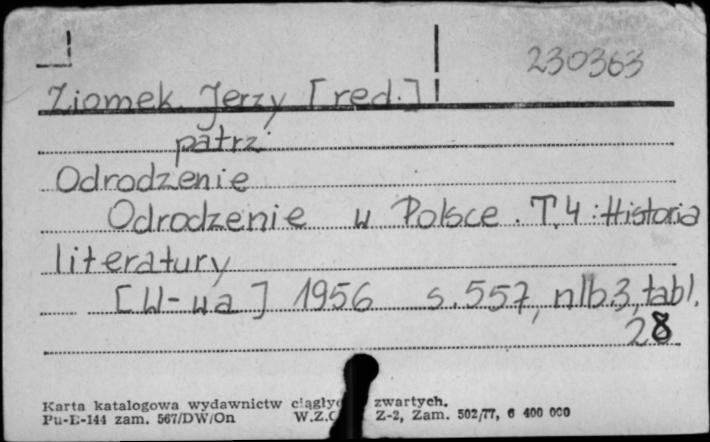 230363
Ziomek Jerzy [red.]
patrz:
Odrodzenie
Odrodzenie w Polsce. T.4: Historia
literatury
[W-wa] 1956 s.557, nlb.3, tabl.
28
Karta katalogowa wydawnictw zwartych.
Pu-E-144 zam. 567/DW/On Z-2, Zam. 502/77, 6 400 000